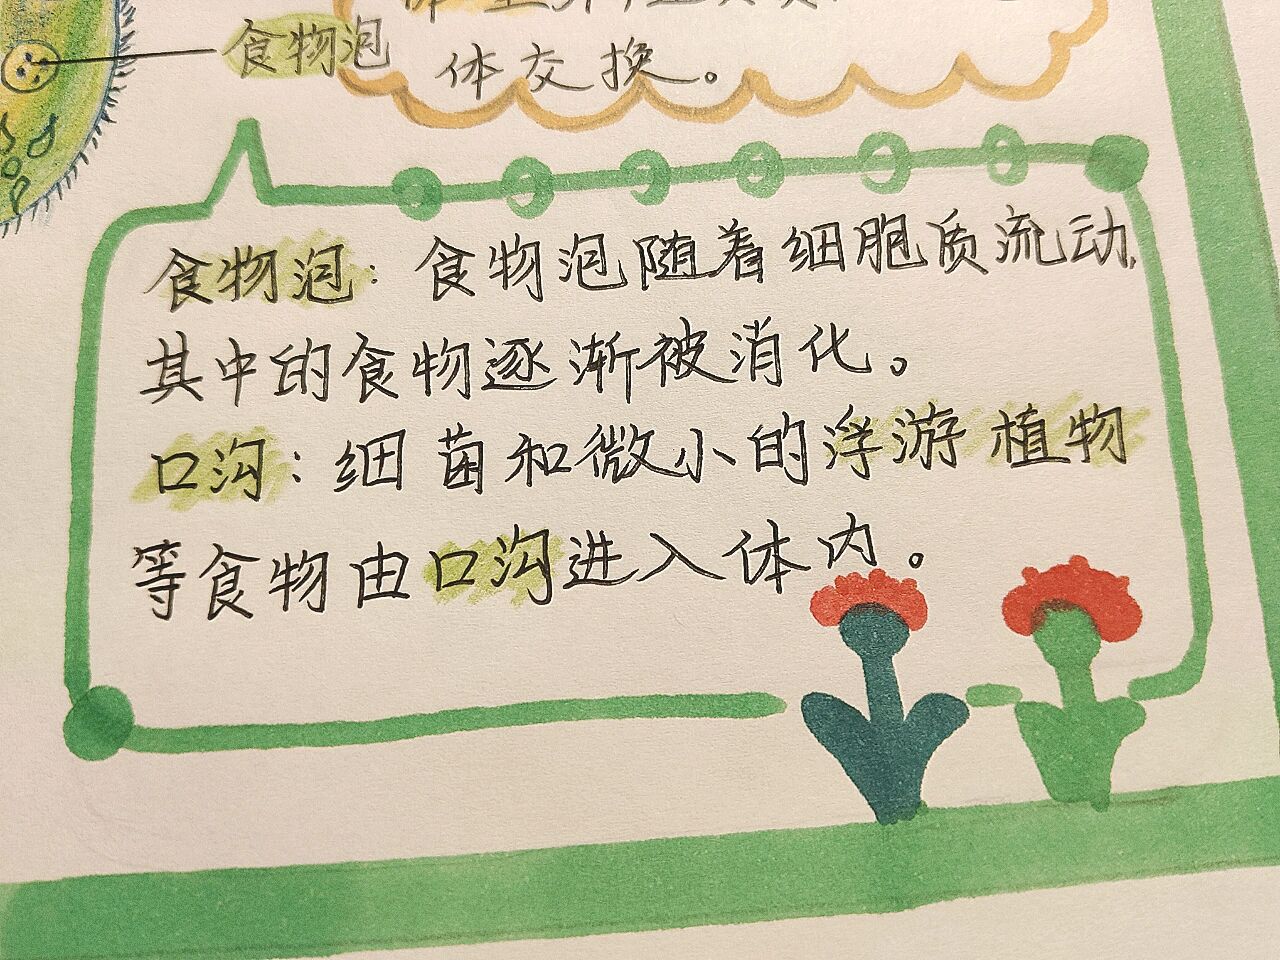 食物泡
体交换。
食物泡：食物泡随着细胞质流动，
其中的食物逐渐被消化。
口沟：细菌和微小的浮游植物
等食物由口沟进入体内。